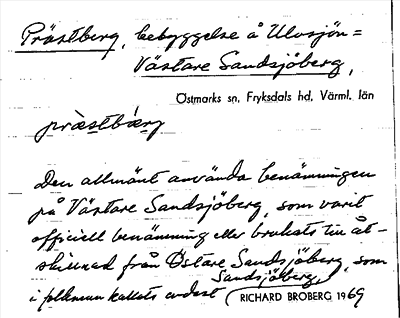 Prästberg, bebyggelse å Ulvsjön =
Västare Sandsjöberg,
Östmarks sn, Fryksdals hd, Värml. län
præstbærg
Den allmänt använda benämningen
på Västare Sandsjöberg, som varit
officiell benämning eller brukats till åt-
skillnad från Östare Sandsjöberg, som
i folkmun kallats endast Sandsjöberg.
RICHARD BROBERG 1969